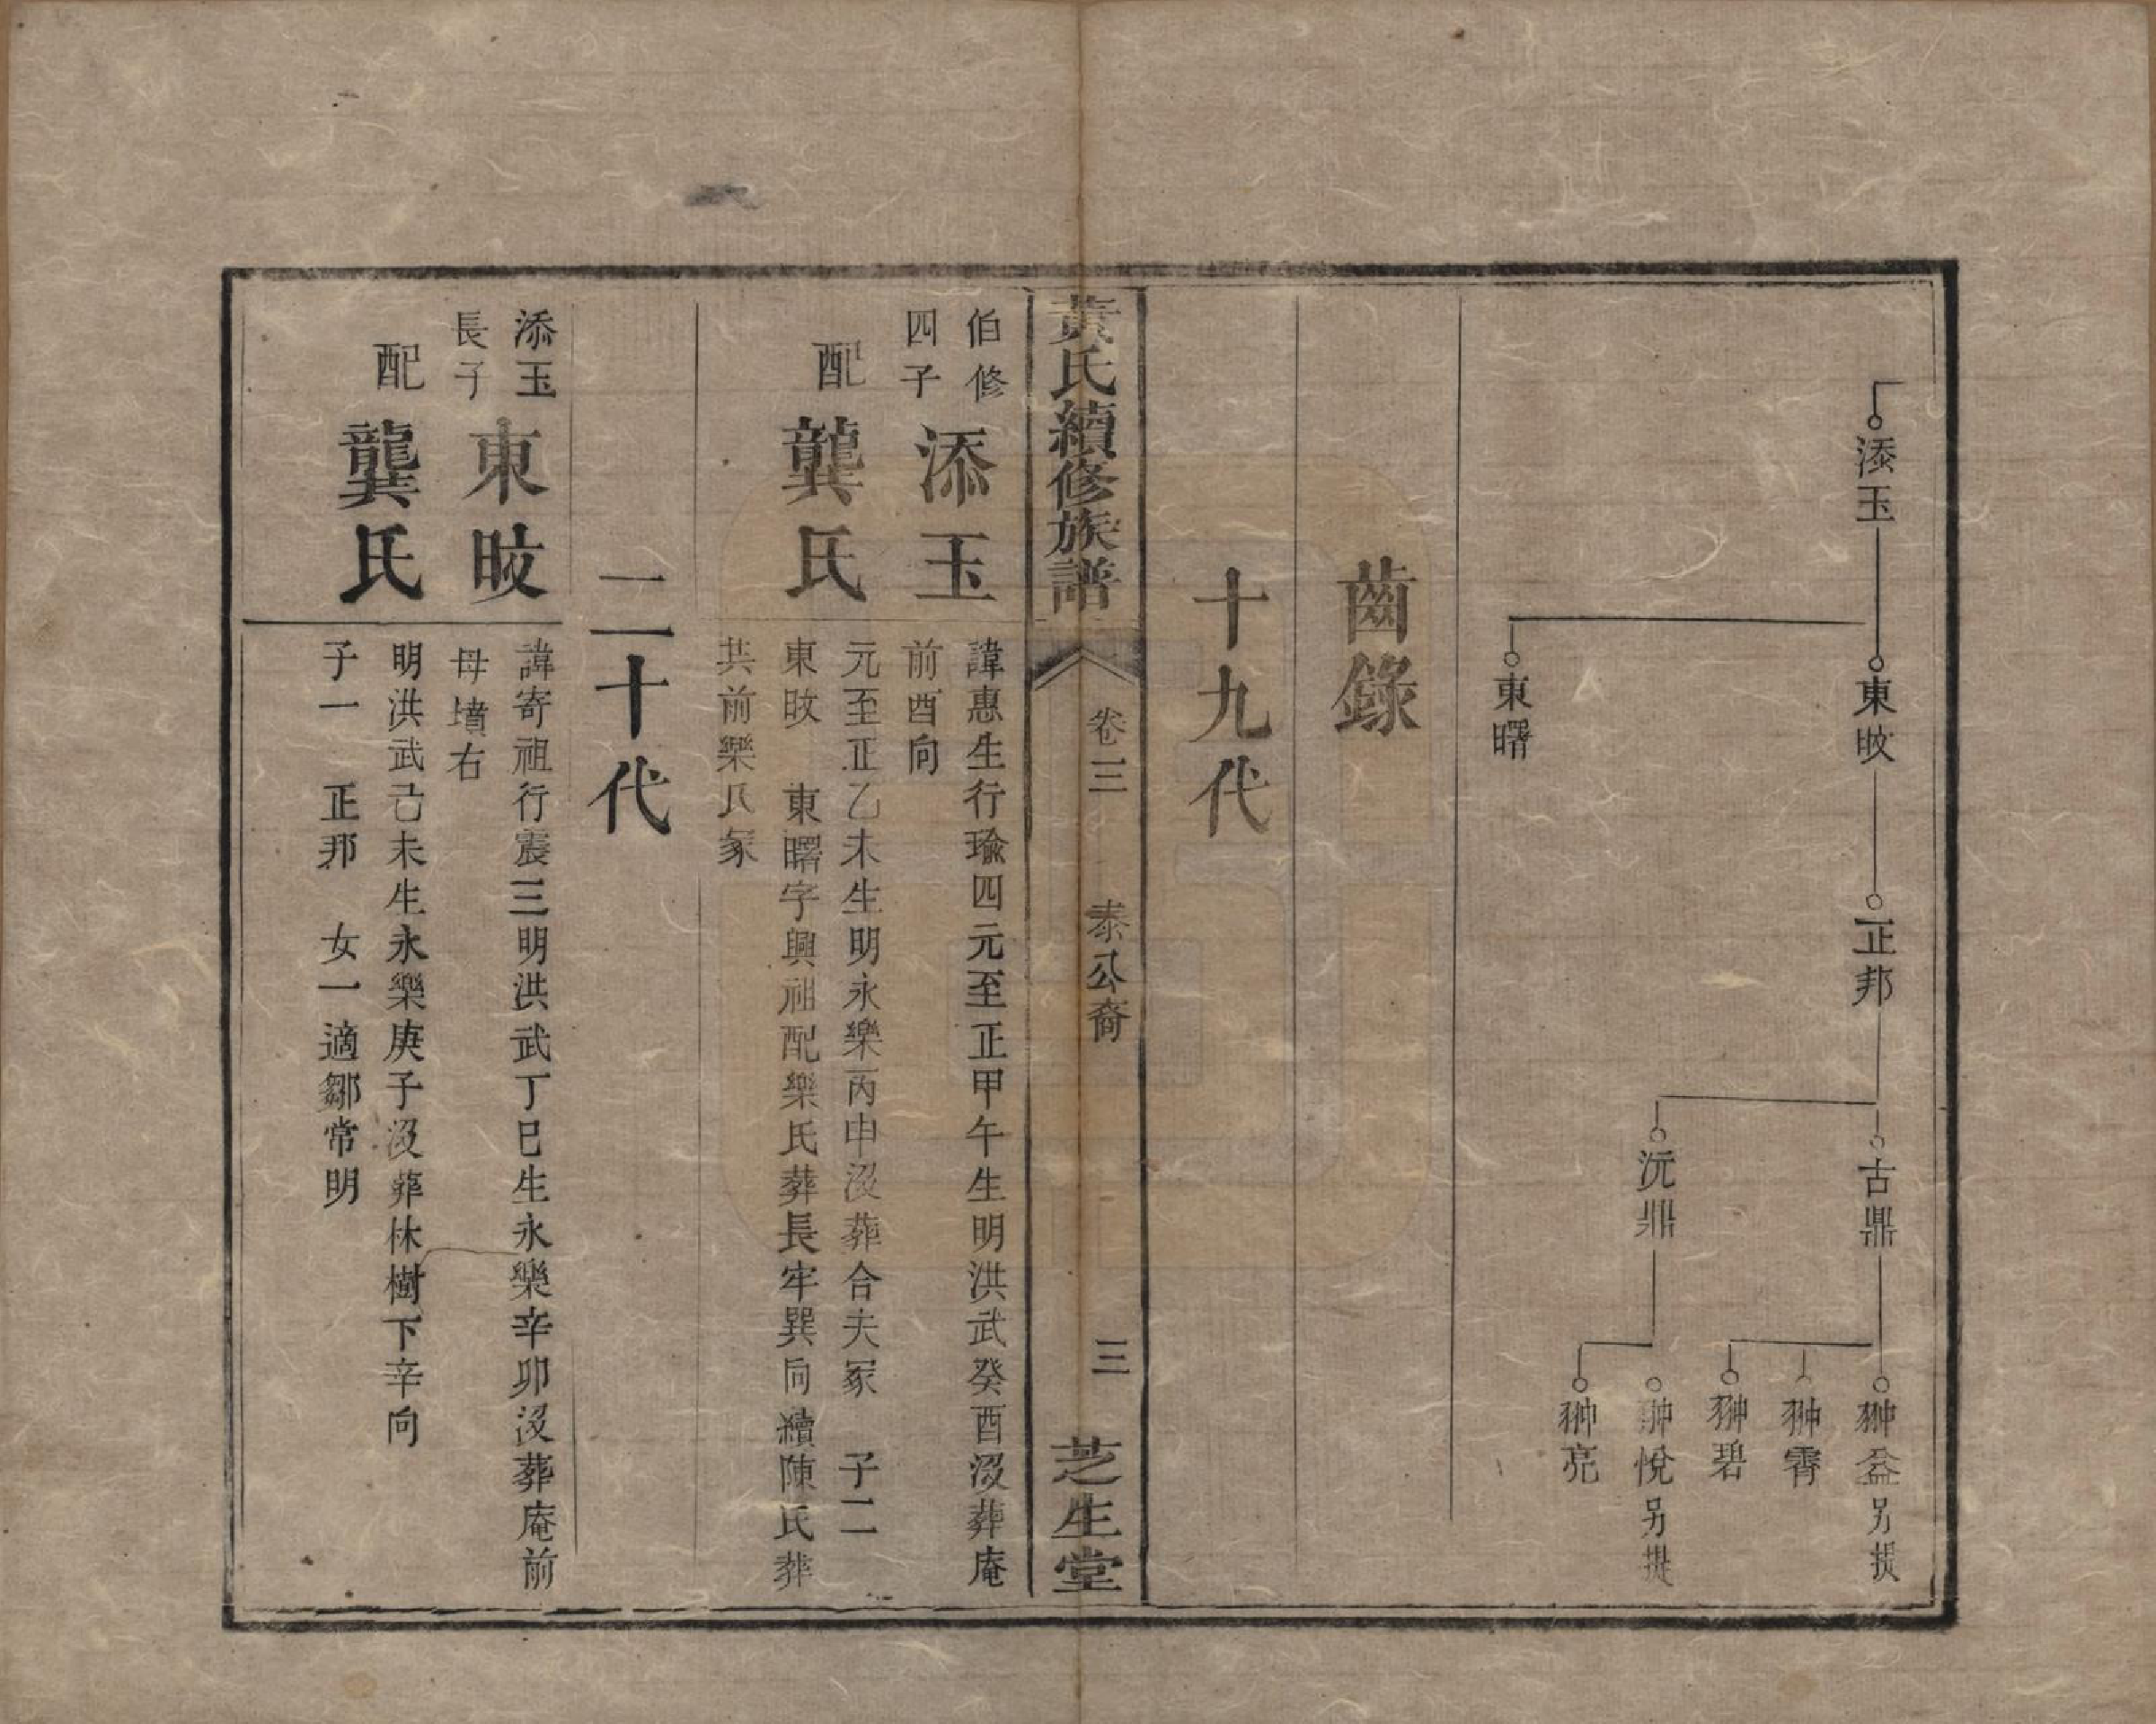 添玉
東旼
東曙
正邦
古鼎
沅鼎
翀益另提
翀霄
翀碧
翀悅另提
翀亮
齒錄
十九代
黃氏續修族譜
卷三
泰公裔
三
芝生堂
伯修
四子
添玉
諱惠生行瑜四元至正甲午生明洪武癸酉沒葬庵
前酉向
配
龔氏
元至正乙未生明永樂丙申沒葬合夫冢 子二
東旼 東曙字興祖配樂氏葬長牢巽向續陳氏葬
共前樂氏冢
二十代
添玉
長子
東旼
諱寄祖行震三明洪武丁巳生永樂辛卯沒葬庵前
母墳右
配
龔氏
明洪武己未生永樂庚子沒葬休樹下辛向
子一 正邦 女一適鄒常明